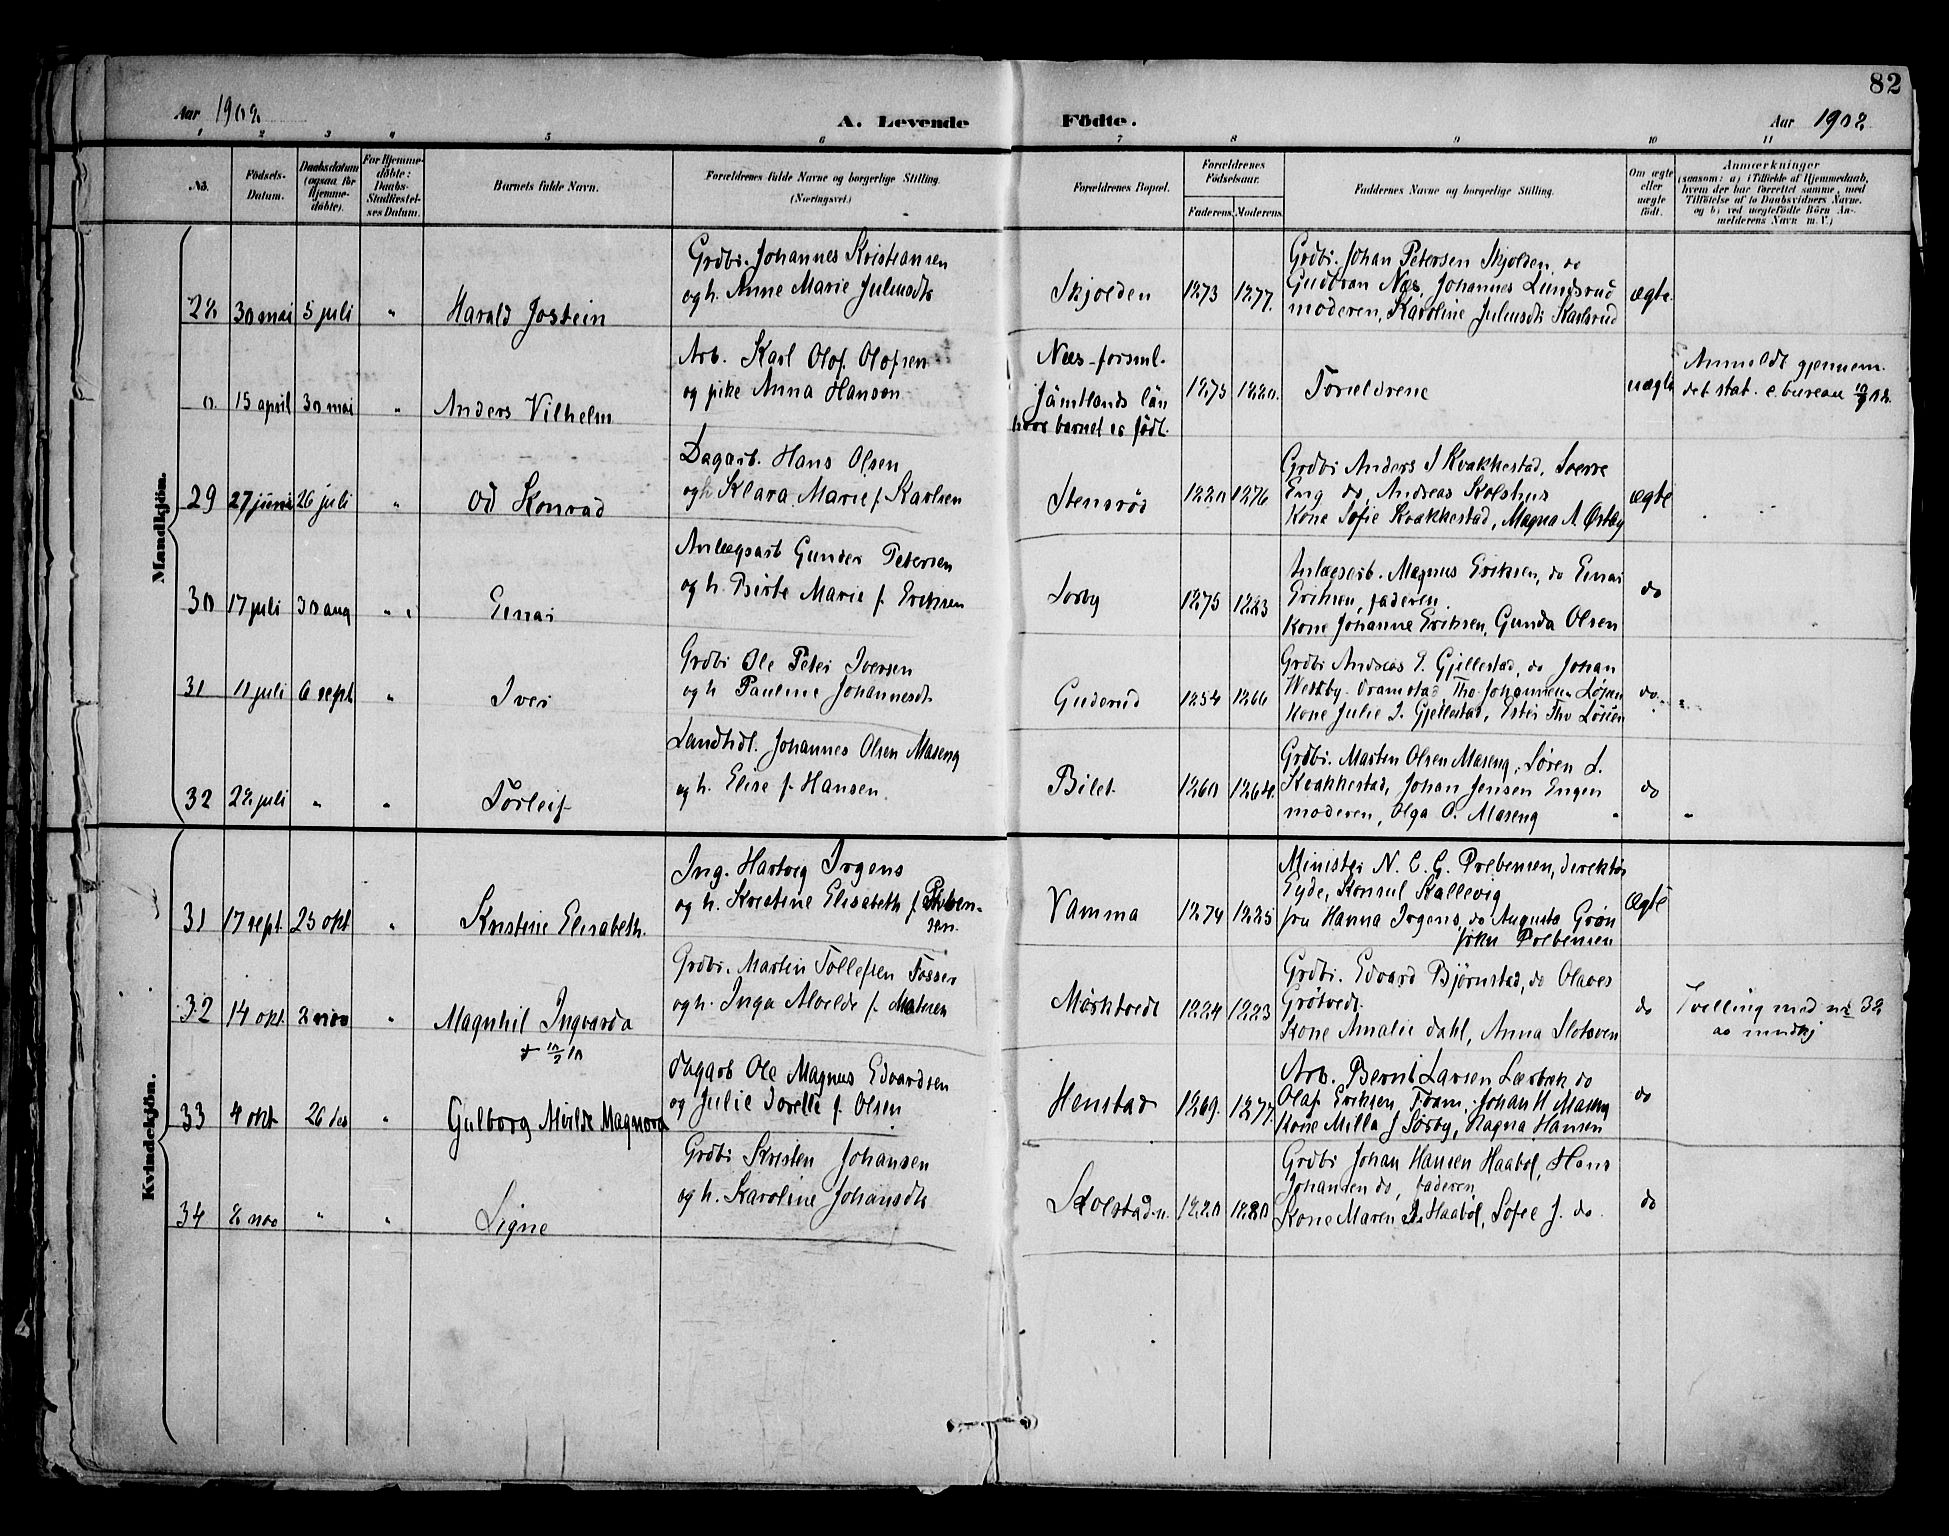 82
Aar 1902
A. Levende Födte.
Aar 1902
1 2 3 4 5 6 7 8 9 10 11
No.
Födsels-Datum.
Daabsdatum (ogsaa for Hjemme-döbte).
For Hjemme-döbte: Daabs-Stadfæstel-ses Datum.
Barnets fulde Navn.
Forældrenes fulde Navne og borgerlige Stilling. (Næringsvei.)
Forældrenes Bopæl.
Forældrenes Födselsaar.
Faderens. Moderens.
Faddernes Navne og borgerlige Stilling.
Om ægte eller uægte födt.
Anmærkninger
(saasom: a) i Tilfælde af Hjemmedaab,
hvem der har forrettet samme, med
Tilföielse af to Daabsvidners Navne.
og b) ved uægtefödte Börn An-
melderens Navn m. V.)
Mandkjön.
28 30 mai 5 juli " Harald Jostein
Grdbr. Johannes Kristiansen
og h. Anne Marie Juliusdtr
Skjolden 1873 1877.
Grdbr. Johan Petersen Skjolden, do
Gudbran Næs, Johannes Lundsrud
moderen, Karoline Juliusdtr Karlsrud
ægte.
0. 15 april 30 mai " Anders Vilhelm
Arb. Karl Olof Olofsen
og pike Anna Hansen
Næs-forsml.
Jämtlands län
hvor barnet er født.
1875 1880.
Forældrene
uægte
Anmeldt gjennem
det stat. c. bureau 10/9 02.
29 27 juni 26 juli " Od Konrad
Dagarb. Hans Olsen
og h Klara Marie f. Karlsen
Stensrød 1880 1876
Grdbr Anders J Kvakkestad, Sverre
Eng do, Andreas Kolshus
Kone Sofie Kvakkestad, Magna A Ørtby
ægte
30 17 juli 30 aug " Einar
Anlægsarb Gunder Petersen
og h. Birte Marie f. Eriksen
Sorby 1875 1883
Anlægsarb. Magnus Eriksen, do Einar
Eriksen, faderen.
Kone Johanne Eriksen, Gunda Olsen
do
31 11 juli 6 sept " Iver
Grdbr Ole Peter Iversen
og h Pauline Johannesdt.
Guderud 1854 1866
Grdbr Andreas E. Gjellestad, do Johan
Westby-Dramstad, Tho. Johannesen Løken
Kone Julie I. Gjellestad, Ester Tho Løken
do
32 28 juli " " Torleif
Landhdl. Johannes Olsen Maseng
og h. Elise f. Hansen.
Bilet 1860 1864.
Grdbr. Marten Olsen Maseng, Søren L.
Kvakkestad, Johan Jensen Engen
moderen, Olga O. Maseng
do "
Kvindekjön.
31 17 sept. 25 okt " Kristine Elisabeth.
Ing. Hartvig Irgens
og h. Kristine Elisabeth f. Preben-
sen.
Vamma 1874 1885
Minister N. C. G. Prebensen, direktør
Eyde, Konsul Kallevig
fru Hanna Irgens, do Augusta Grøn
frkn Prebensen
Ægte
32 14 okt. 2 nov " Magnhil Ingvarda
+ 10/2 10
Grdbr. Martin Tollefsen Fosser
og h. Inga Alvilde f. Matsen
Mørktvedt 1884 1883
Grdbr. Edvard Bjørnstad, do Olaves
Grøtvedt.
Kone Amalie Dahl, Anna Slotsven
do
Tvelling med nr 32
av mndkj
33 4 okt 26 des " Gulborg Alvilde Magnora
Dagarb Ole Magnus Edvardsen
og Julie Dorette f. Olsen
Henstad 1869. 1877.
Arb. Bernt Larsen Lærbæk do
Olaf Eriksen, Foam, Johan H Maseng
Kone Milla J Sørby, Ragna Hansen
do
34 2 nov " " Signe
Grdbr Kristen Johansen
og h. Karoline Johansdtr
Skolstad n. 1880 1880
Grdbr Johan Hansen Haabøl, Hans
Johansen do, faderen,
Kone Maren J. Haabøl, Sofie J. do.
do